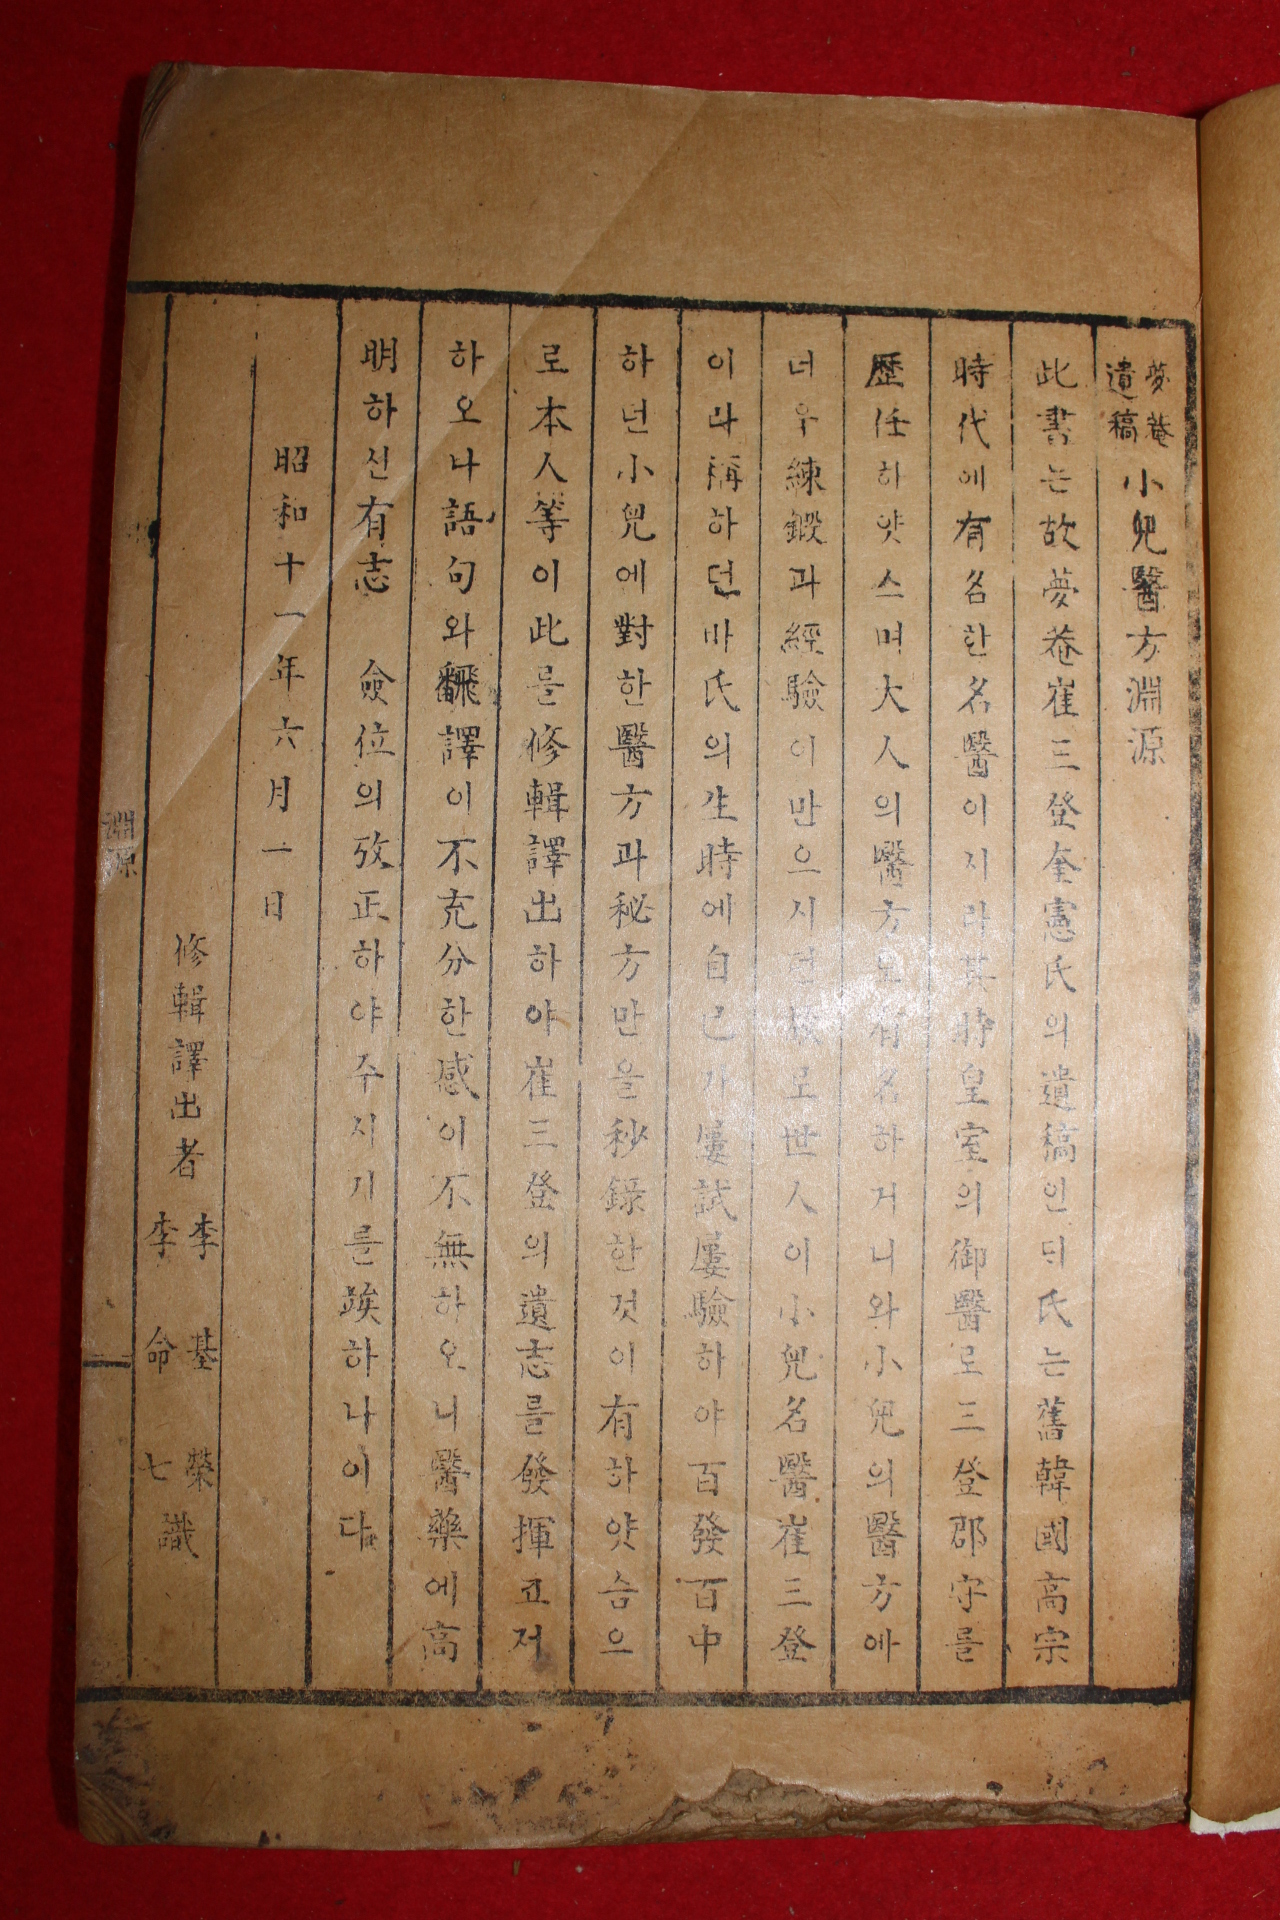 夢菴遺稿 小兒醫方淵源
此書는故夢菴崔三登奎憲氏의遺稿인듸氏는舊韓國高宗
時代에有名한名醫이지라其時皇室의御醫로三登郡守를
歷任하얏스며大人의醫方도有名하거니와小兒의醫方에
너우練鍛과經驗이만으시던故로世人이小兒名醫崔三登
이라稱하던바氏의生時에自己가屢試屢驗하야百發百中
하던小兒에對한醫方과秘方만을秒錄한것이有하얏슴으
로本人等이此를修輯譯出하야崔三登의遺志를發揮코저
하오나語句와飜譯이不充分한感이不無하오니醫藥에高
明하신有志 僉位의攷正하야주시기를竢하나이다
昭和十一年六月一日
修輯譯出者 李基榮
李命七 識
淵源
一